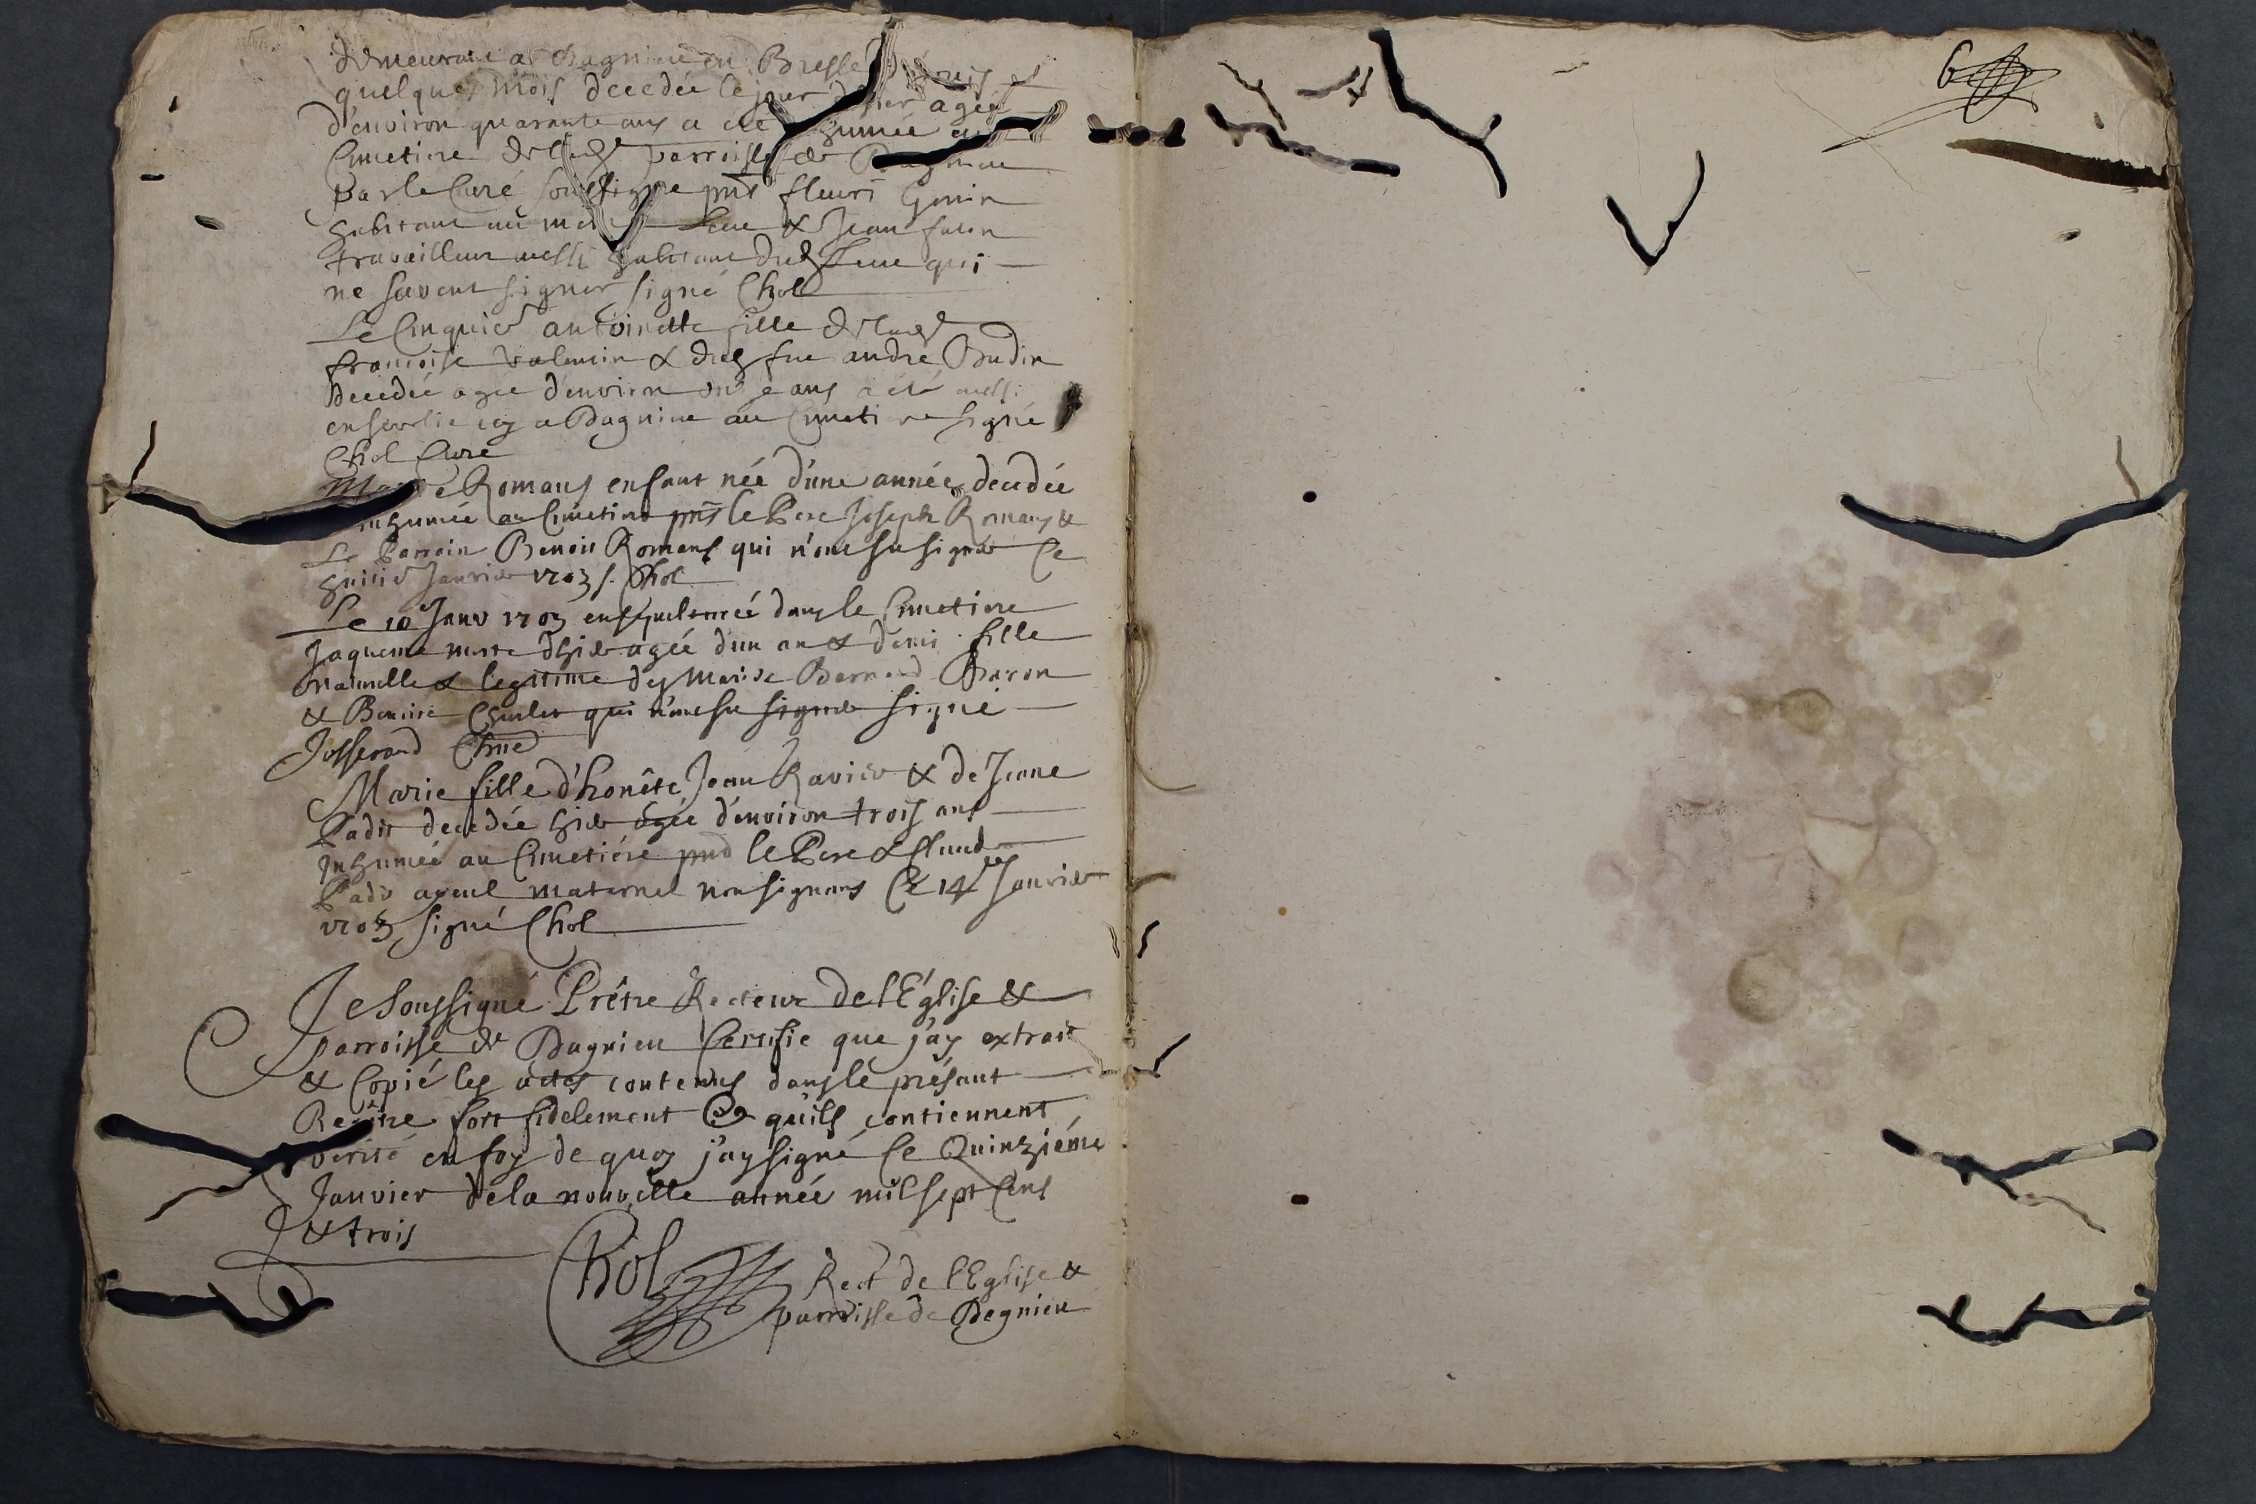 demeurant a Dagnieu en Bresse depuis
quelques mois decedée le jour d'hier agée
d'environ quarante ans a été inhumée au
Cimetiere de lad parroisse de Dagnieu
Par le Curé soussigné pnt fleuri Gonin
habitant au lieu & Jean
travailleur aussi habitant dud lieu qui
ne savent signer signé Chol
Le Cinquie antoinette fille de lad
francoise & dud feu andre Budin
Decedée agee d'environ onze ans a été aussi
ensevelie icy a Dagnieu au Cimetiere signé
Chol Curé
Romans enfant née d'une année decedée
inhumée au Cimetiere pnt le Pere Joseph Romans &
Le Parrain Benoit Romans qui n'ont su signer Ce
huitie Janvier 1703 s. Chol
Le 10e Janv 1703 dans le Cimetiere
Jaquema morte d'hier agée d'un an & demi fille
naturelle & legitime des Marie Bernard Baron
& Benoite qui n'ont su signer signé
Josserand
Marie fille d'honête Jean Ravier & de Jeane
Padit decedée hier agée d'environ trois ans
Inhumée au Cimetiére pnd le Pere & Claude
Padit ayeul maternel non signans Ce 14 Janvier
1703 signé Chol
Je Soussigné Prêtre Recteur de l'Église &
parroisse de Dagnieu Certifie que j'ay extrait
& Copié les actes contenus dans le présant
Regître fort fidelement & qu'ils contiennent
verité en foy de quoy j'ay signé Ce Quinziéme
Janvier de la nouvelle année mil sept Cens
& trois
Chol Rect de l'Eglise &
parroisse de Dagnieu
6